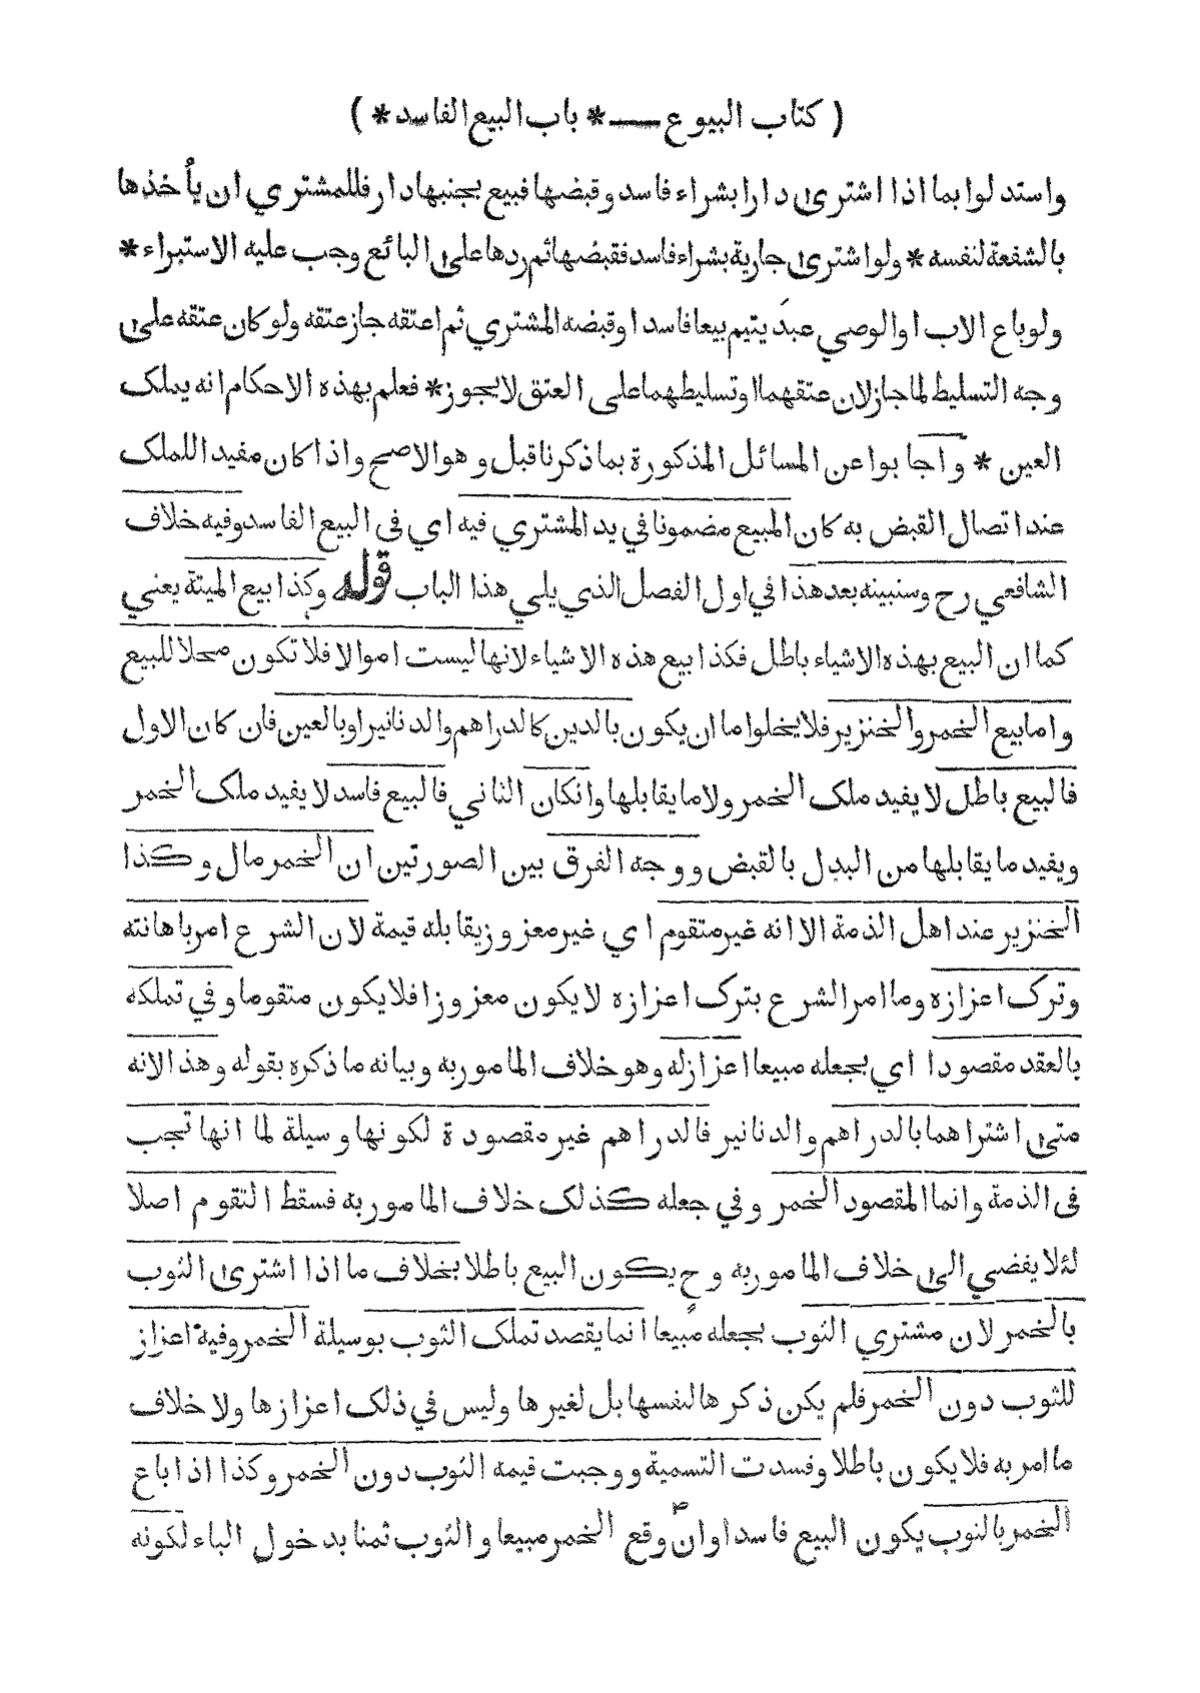 ( كتاب البيوع — * باب البيع الفاسد * )
واستدلوا بما اذا اشترى دارا بشراء فاسد وقبضها فبيع بجنبها دار فللمشتري ان يأخذها
بالشفعة لنفسه * ولو اشترى جارية بشراء فاسد فقبضها ثم ردها على البائع وجب عليه الاستبراء *
ولو باع الاب او الوصي عبد يتيم بيعا فاسدا وقبضه المشتري ثم اعتقه جاز عتقه ولو كان عتقه على
وجه التسليط لما جاز لان عتقهما او تسليطهما على العتق لا يجوز * فعلم بهذه الاحكام انه يملك
العين * واجابوا عن المسائل المذكورة بما ذكرنا قبل وهو الاصح واذا كان مفيدا للملك
عند اتصال القبض به كان المبيع مضمونا في يد المشتري فيه اي في البيع الفاسد وفيه خلاف
الشافعي رح وسنبينه بعد هذا في اول الفصل الذي يلي هذا الباب قوله وكذا بيع الميتة يعني
كما ان البيع بهذه الاشياء باطل فكذا بيع هذه الاشياء لانها ليست اموالا فلا تكون محلا للبيع
واما بيع الخمر والخنزير فلا يخلوا ما ان يكون بالدين كالدراهم والدنانير او بالعين فان كان الاول
فالبيع باطل لا يفيد ملك الخمر ولا ما يقابلها وانكان الثاني فالبيع فاسد لا يفيد ملك الخمر
ويفيد ما يقابلها من البدل بالقبض ووجه الفرق بين الصورتين ان الخمر مال وكذا
الخنزير عند اهل الذمة الا انه غير متقوم اي غير معزوز يقابله قيمة لان الشرع امر باهانته
وترك اعزازه وما امر الشرع بترك اعزازه لا يكون معزوزا فلا يكون متقوما وفي تملكه
بالعقد مقصودا اي بجعله مبيعا اعزازله وهو خلاف المامور به وبيانه ما ذكره بقوله وهذا لانه
متى اشتراهما بالدراهم والدنانير فالدراهم غير مقصودة لكونها وسيلة لما انها تجب
في الذمة وانما المقصود الخمر وفي جعله كذلك خلاف المامور به فسقط التقوم اصلا
لئلا يفضي الى خلاف المامور به وح يكون البيع باطلا بخلاف ما اذا اشترى الثوب
بالخمر لان مشتري الثوب بجعله مبيعا انما يقصد تملك الثوب بوسيلة الخمر وفيه اعزاز
للثوب دون الخمر فلم يكن ذكرها لنفسها بل لغيرها وليس في ذلك اعزازها ولا خلاف
ما امر به فلا يكون باطلا وفسدت التسمية ووجبت قيمه الثوب دون الخمر وكذا اذا باع
الخمر بالثوب يكون البيع فاسدا وان وقع الخمر مبيعا والثوب ثمنا بدخول الباء لكونه